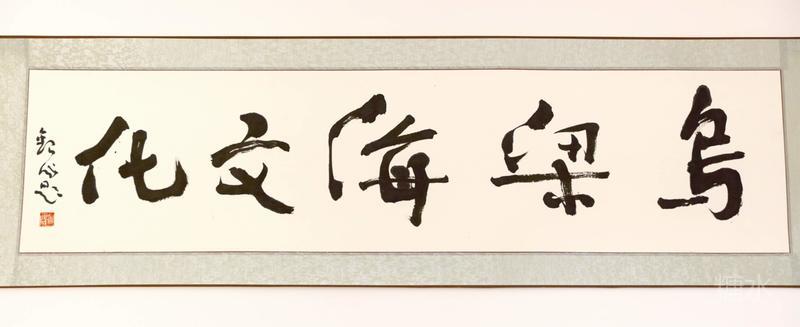 乌梁海文化
糖水